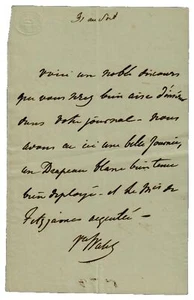 voici un noble discours
que vous serez bien aise d'insérer
dans votre journal - nous
avons eu ici une belle journée,
un Drapeau blanc bien tenu
bien déployé - et le
Fitzjames